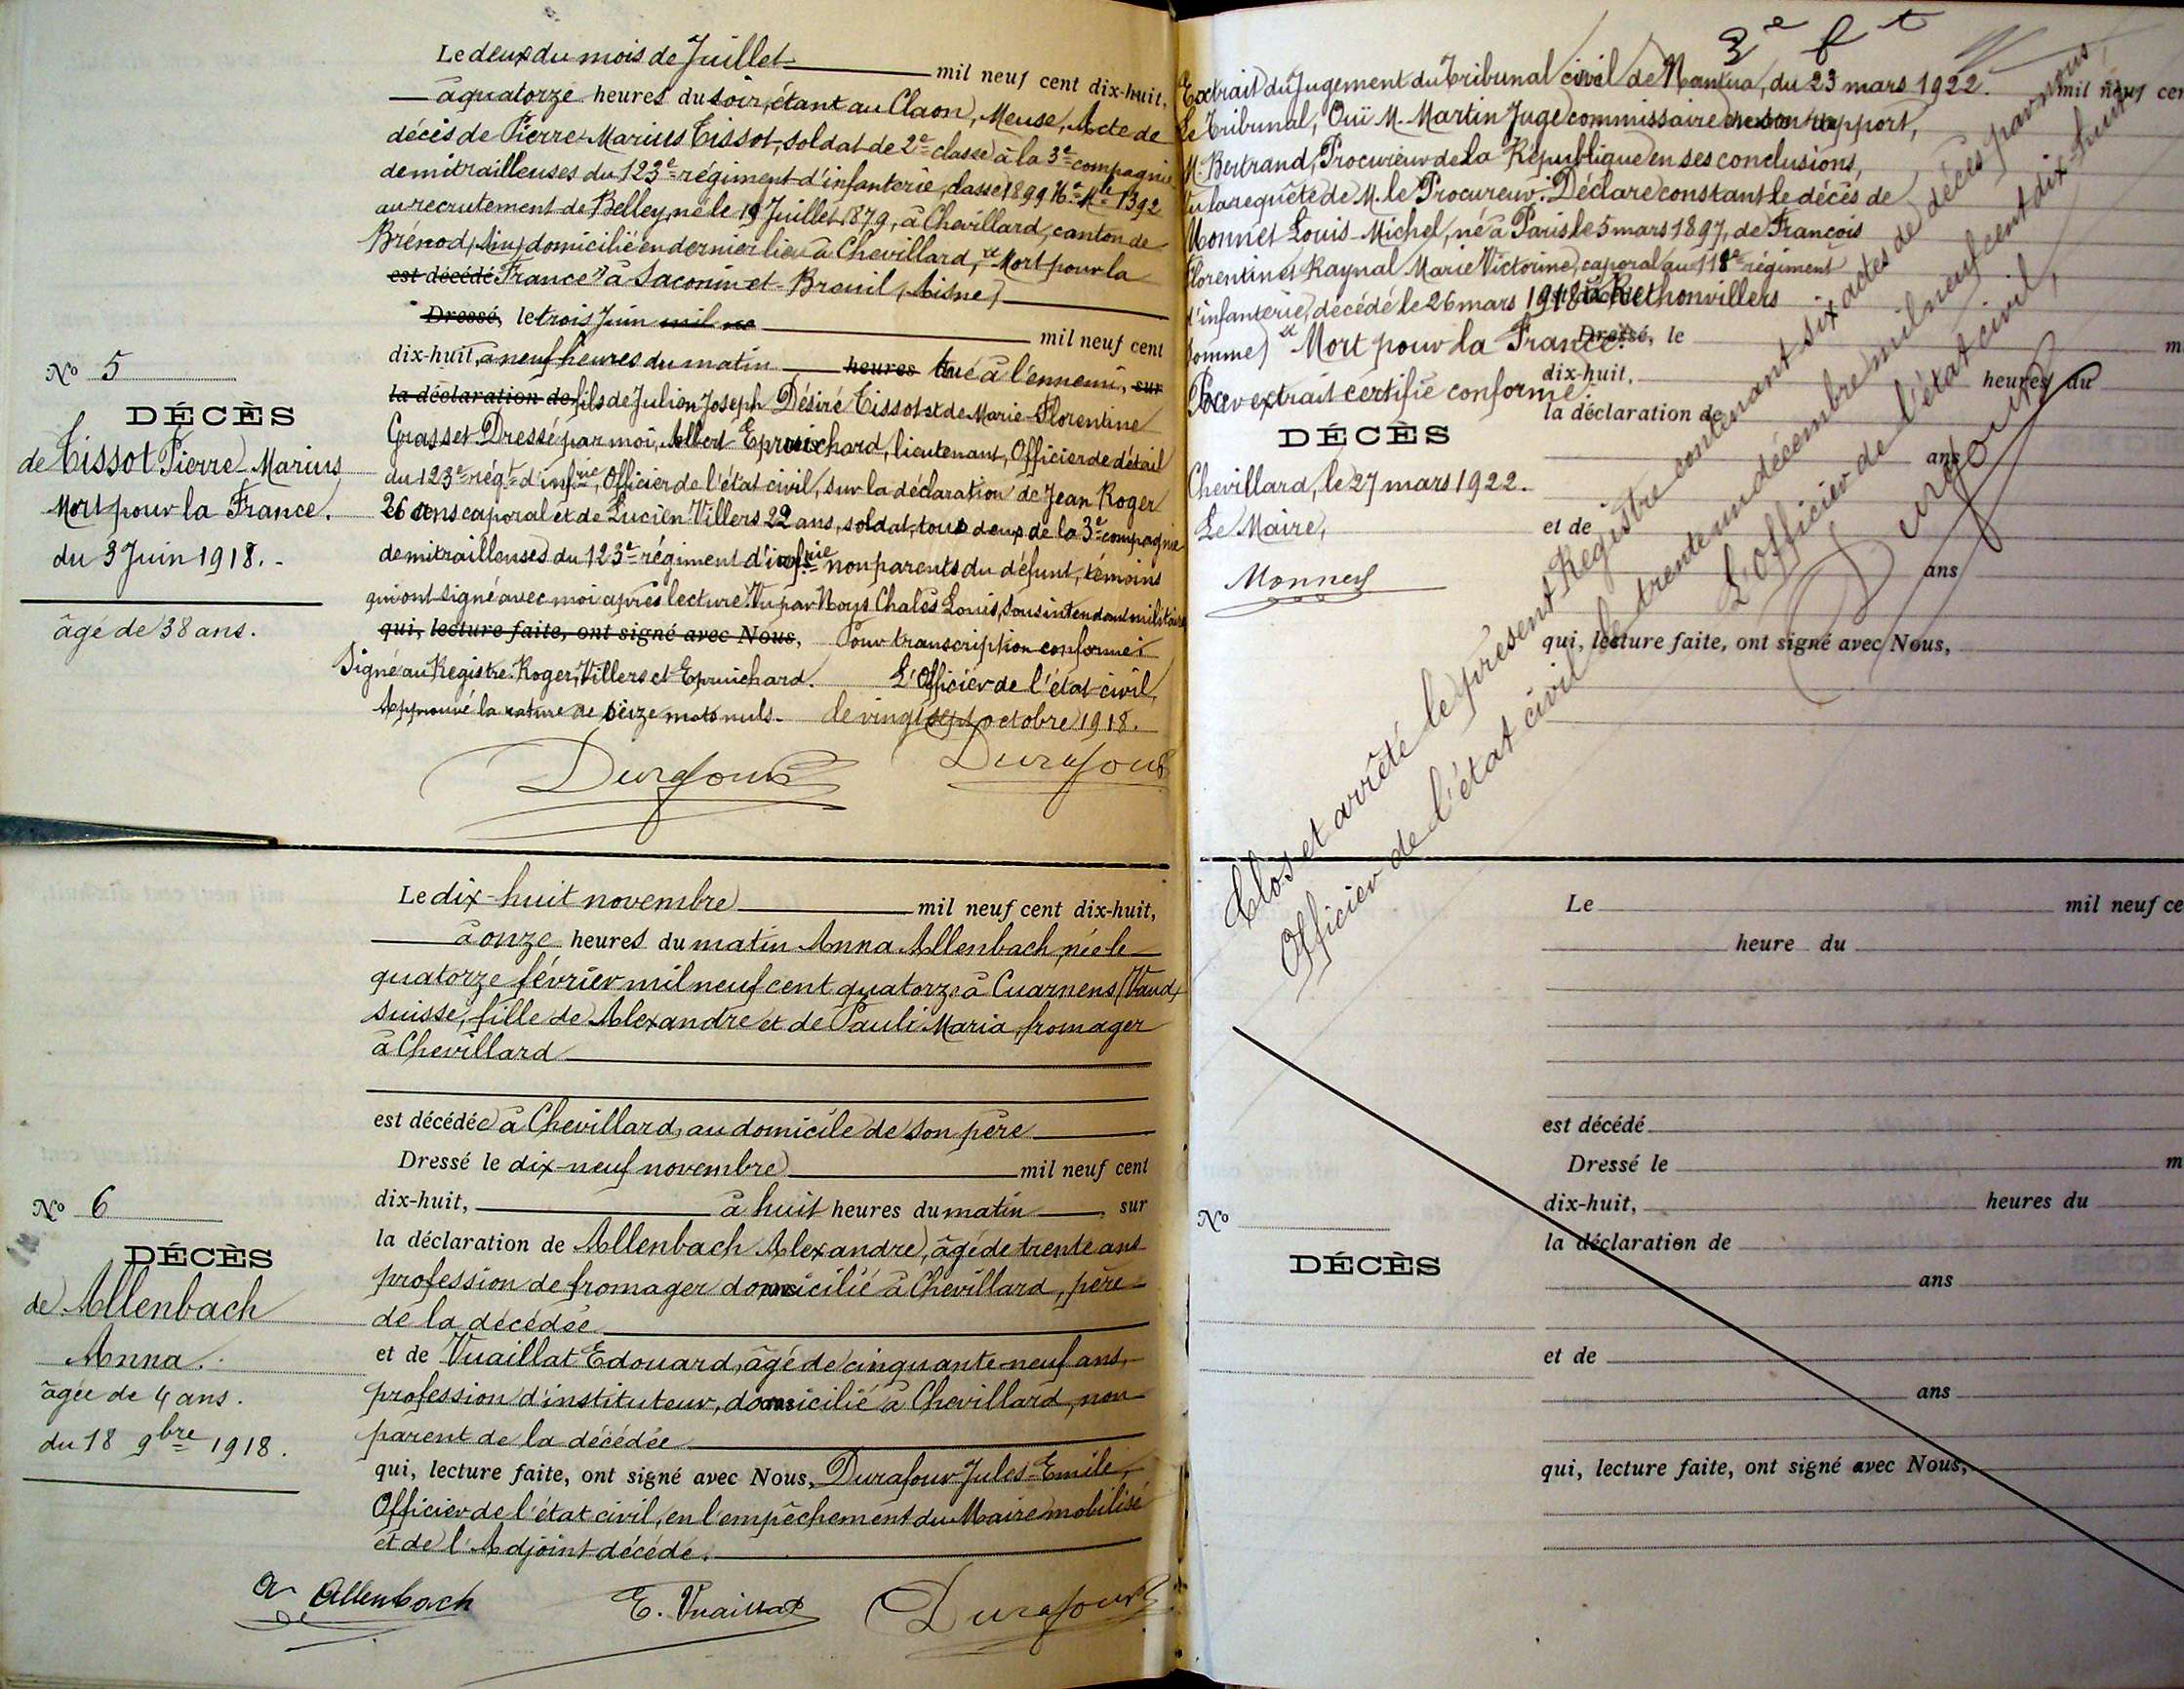 Le deux du mois de Juillet mil neuf cent dix-huit,
à quatorze heures du soir, étant au Claon, Meuse, Acte de
décès de Pierre Marius Tissot, soldat de 2e classe à la 3e compagnie
de mitrailleuses du 123e régiment d'infanterie, classe 1899 No Mle 1392
au recrutement de Belley, né le 19 Juillet 1879, à Chevillard, canton de
Brénod, Ain, domicilié en dernier lieu à Chevillard, "Mort pour la
est décédé France" à Saconin-et-Breuil (Aisne)
Dressé, le trois Juin mil mil neuf cent
dix-huit, à neuf heures du matin heures tué à l'ennemi, sur
la déclaration de fils de Julien Joseph Désiré Tissot et de Marie Florentine
Grasset Dressé par moi, Albert Epruichard, lieutenant, Officier de détail
du 123e régt d'infrie, Officier de l'état civil, sur la déclaration de Jean Roger
26 ans caporal et de Lucien Villers 22 ans, soldat, tous deux de la 3e compagnie
de mitrailleuses du 123e régiment d'infrie non parents du défunt, témoins
qui ont signé avec moi après lecture. Vu par Nous Chalès Louis, sous intendant militaire
qui, lecture faite, ont signé avec Nous, Pour transcription conforme:
Signé au Registre. Roger, Villers et Epruichard. L'Officier de l'état civil,
Approuvé la rature de seize mots nuls. le vingt sept octobre 1918.
Durafour Durafour
No 5
DÉCÈS
de Tissot Pierre Marius
Mort pour la France.
du 3 Juin 1918.
âgé de 38 ans.
Le dix-huit novembre mil neuf cent dix-huit,
à onze heures du matin Anna Allenbach, née le
quatorze février mil neuf cent quatorze à Cuarnens (Vaud)
suisse, fille de Alexandre et de Pauli Maria, fromager
à Chevillard
est décédée à Chevillard, au domicile de son père
Dressé le dix-neuf novembre mil neuf cent
dix-huit, à huit heures du matin, sur
la déclaration de Allenbach Alexandre, âgé de trente ans
profession de fromager domicilié à Chevillard, père
de la décédée
et de Vuaillat Edouard, âgé de cinquante-neuf ans,
profession d'instituteur, domicilié à Chevillard, non
parent de la décédée
qui, lecture faite, ont signé avec Nous, Durafour Jules-Emile,
Officier de l'état civil, en l'empêchement du Maire mobilisé
et de l'Adjoint décédé.
A Allenbach E. Vuaillat Durafour
No 6
DÉCÈS
de Allenbach
Anna.
âgée de 4 ans.
du 18 9bre 1918.
3e ft
Extrait du Jugement du Tribunal civil de Nantua, du 23 mars 1922. mil neuf cen
Le Tribunal, Ouï M. Martin Juge commissaire en son rapport,
M. Bertrand, Procureur de la République en ses conclusions,
Vu la requête de M. le Procureur. Déclare constant le décès de
Monnet Louis-Michel, né à Paris le 5 mars 1897, de François
Florentin et Raynal Marie Victorine, caporal au 118e régiment
d'infanterie, décédé le 26 mars 1918 à Rethonvillers
(Somme) "Mort pour la France". Dressé, le m
dix-huit, heures du
Pour extrait certifié conforme.
la déclaration de
DÉCÈS
ans
Chevillard, le 27 mars 1922.
et de
Le Maire,
ans
Monnet
qui, lecture faite, ont signé avec Nous,
Clos et arrêté le présent Registre contenant six actes de décès par nous,
Officier de l'état civil le trente un décembre mil neuf cent dix-huit.
L'Officier de l'état civil,
Durafour
Le mil neuf ce
heure du
est décédé
Dressé le m
dix-huit, heures du
No
DÉCÈS
la déclaration de
ans
et de
ans
qui, lecture faite, ont signé avec Nous,